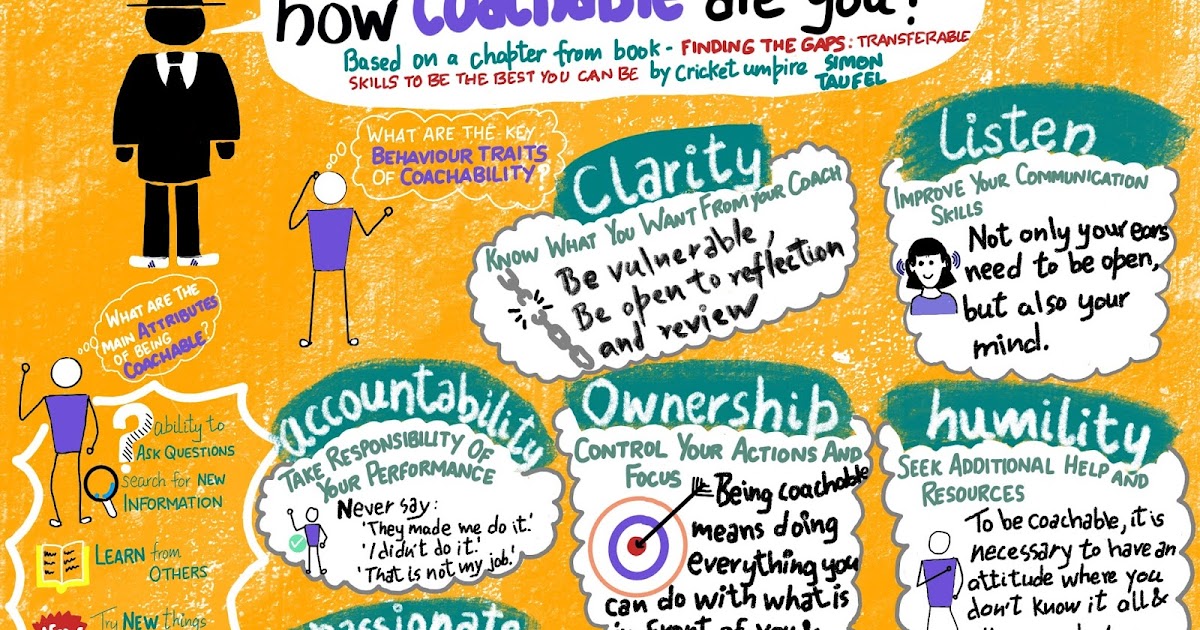 how coachable are you?
Based on a chapter from book - FINDING THE GAPS: TRANSFERABLE
SKILLS TO BE THE BEST YOU CAN BE by cricket umpire SIMON
TAUFEL
WHAT ARE THE KEY
BEHAVIOUR TRAITS
OF COACHABILITY?
Clarity
KNOW WHAT YOU WANT FROM YOUR COACH
Be vulnerable,
Be open to reflection
and review
Listen
IMPROVE YOUR COMMUNICATION
SKILLS
Not only your ears
need to be open,
but also your
mind.
WHAT ARE THE
MAIN ATTRIBUTES
OF BEING
COACHABLE?
?
ability to
ASK QUESTIONS
search for NEW
INFORMATION
LEARN from
OTHERS
Try NEW things
accountability
TAKE RESPONSIBILITY OF
YOUR PERFORMANCE
Never say:
'They made me do it.'
'I didn't do it.'
'That is not my job.'
Ownership
CONTROL YOUR ACTIONS AND
FOCUS
Being coachable
means doing
everything you
can do with what is
in front of you &
humility
SEEK ADDITIONAL HELP AND
RESOURCES
To be coachable, it is
necessary to have an
attitude where you
don't know it all &